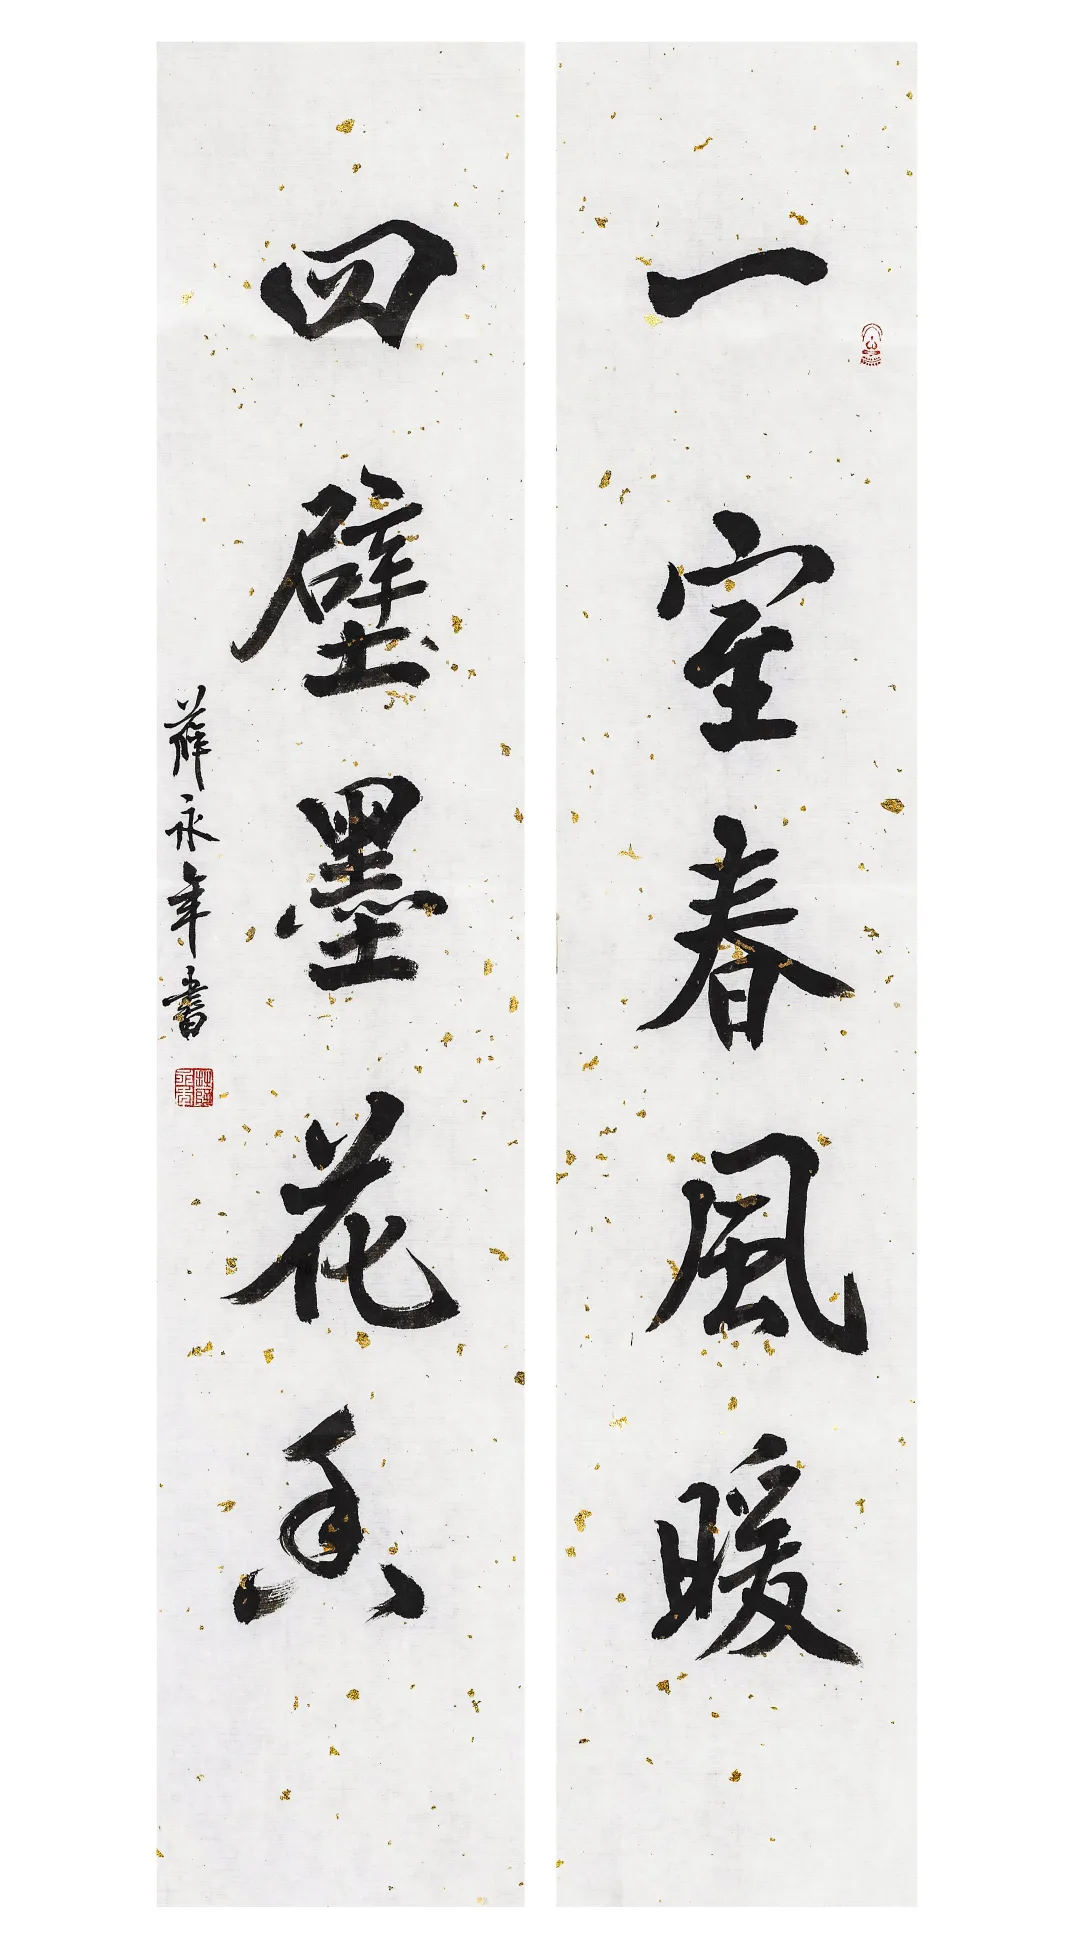 一室春風暖
四壁墨花香
薛永年書